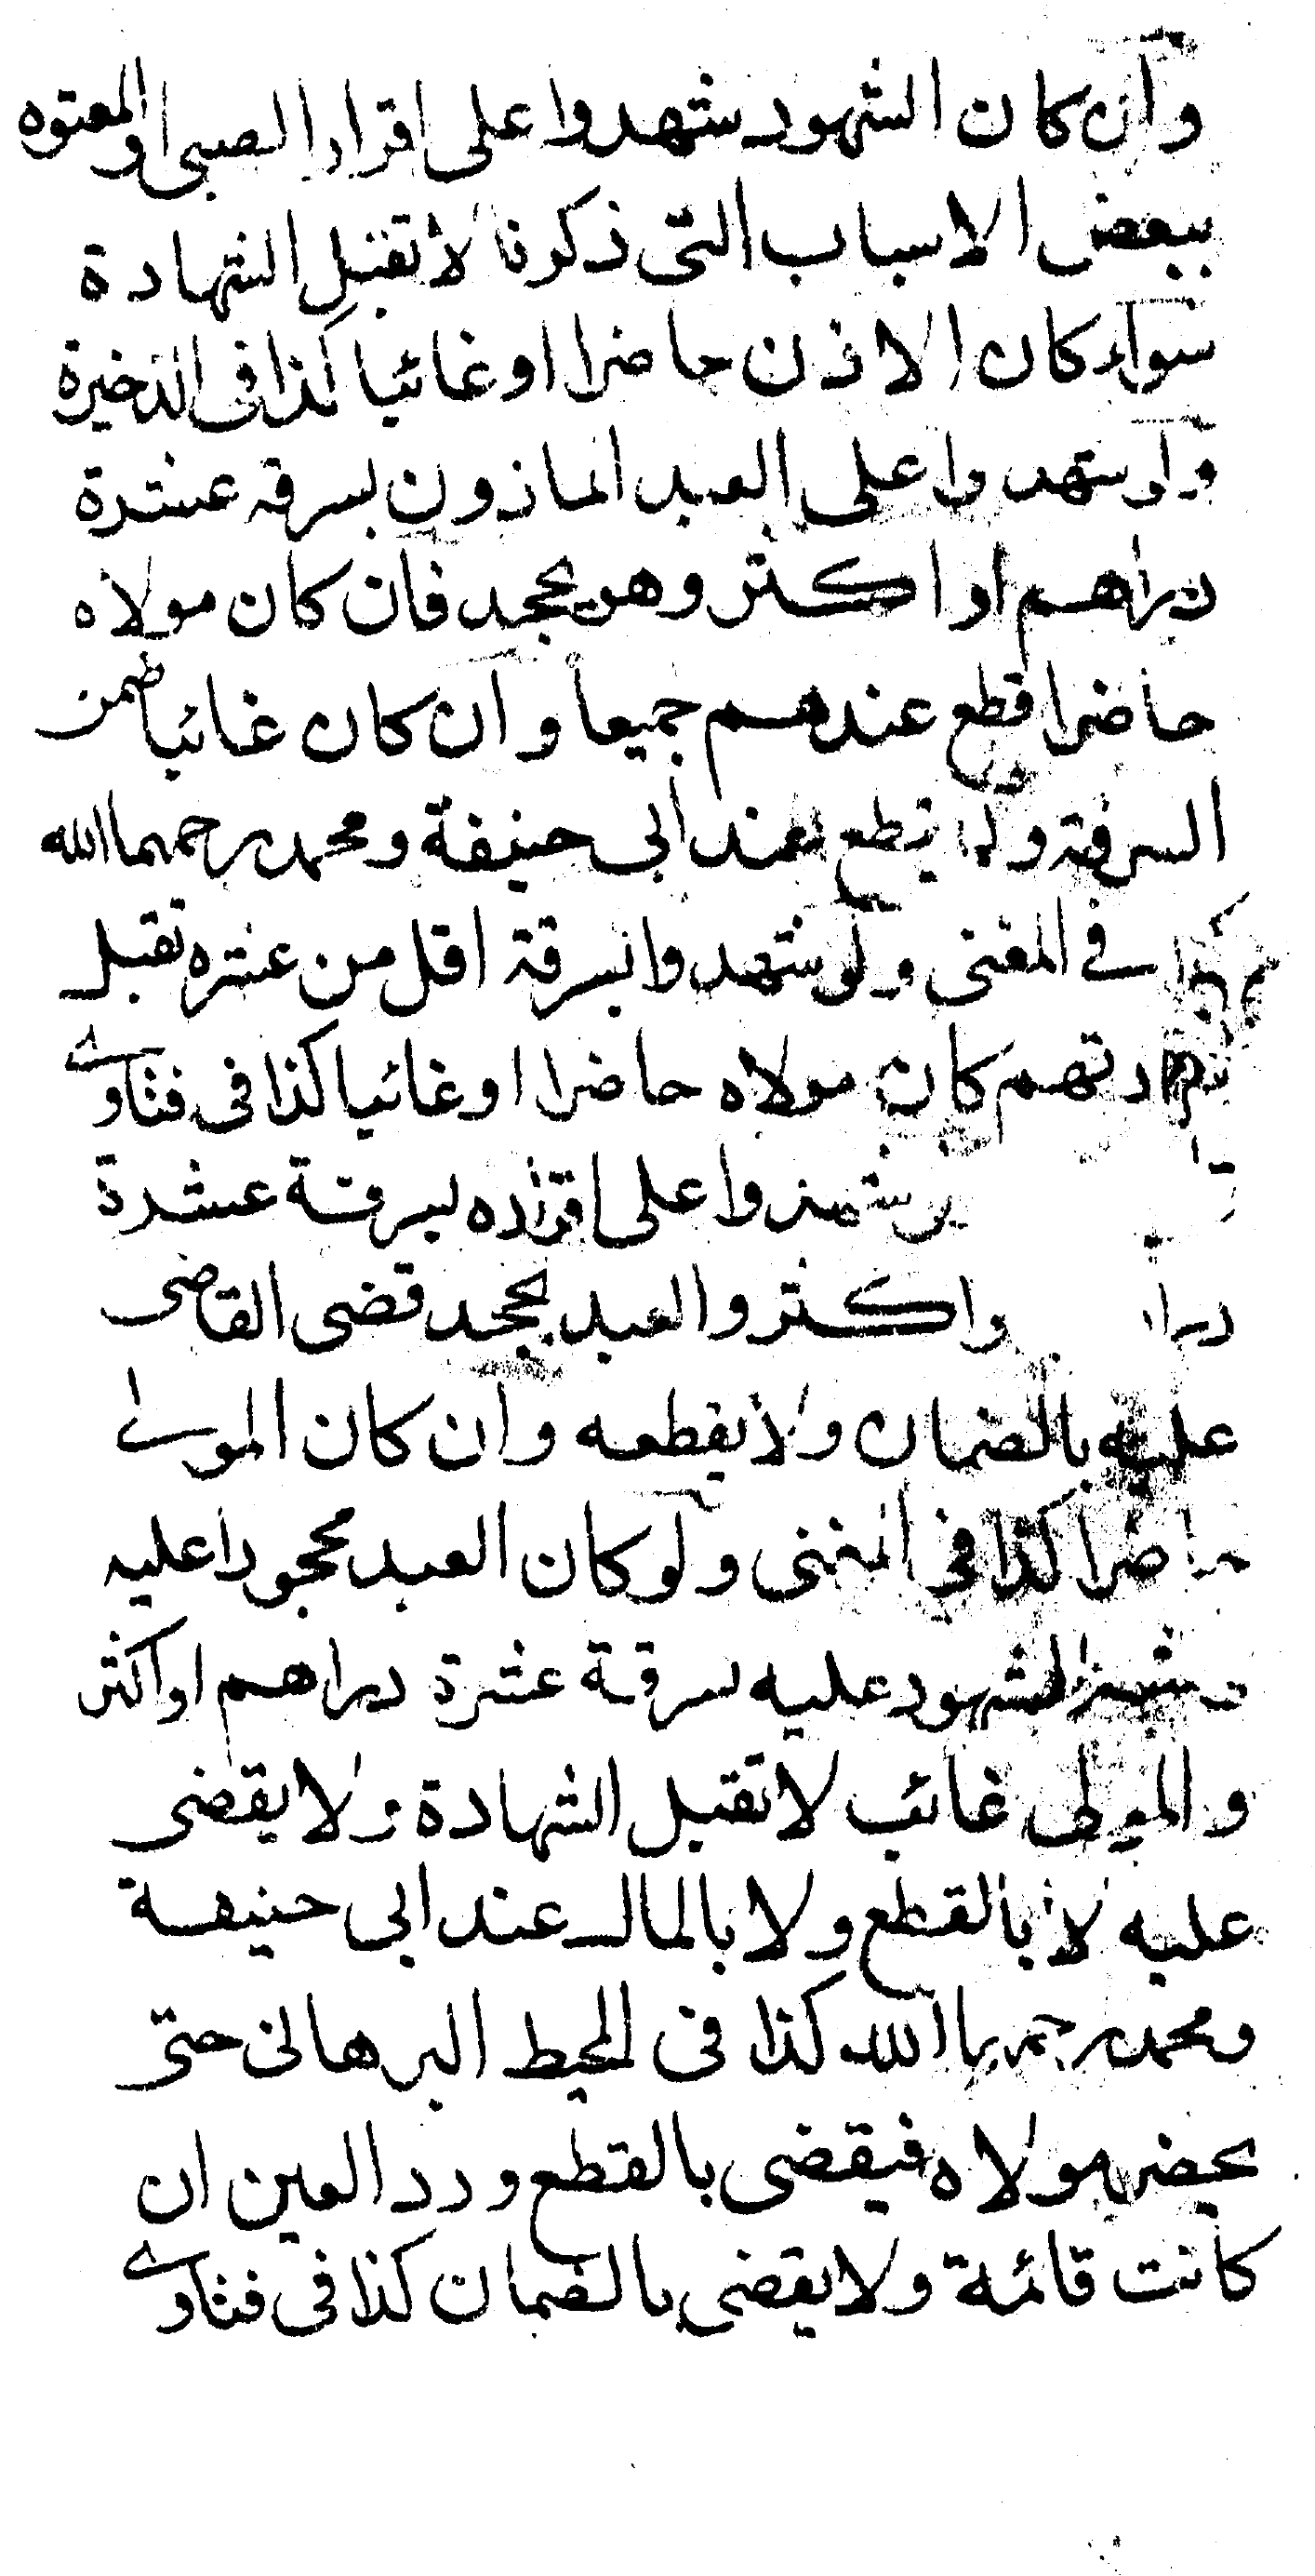 وان كان الشهود شهدوا على اقرار الصبى او المعتوه
ببعض الاسباب التى ذكرنا لا تقبل الشهادة
سواء كان الاذن حاضرا او غائبا كذا فى الذخيرة
ولو شهدوا على العبد الماذون بسرقه عشرة
دراهم او اكثر وهو يجحد فان كان مولاه
حاضرا قطع عندهم جميعا وان كان غائبا ضمن
السرقة ولم يقطع عند ابى حنيفة ومحمد رحمهما الله
كذا فے المغنى ولو شهدوا بسرقة اقل من عشره تقبل
شهادتهم كان مولاه حاضرا او غائبا كذا فى فتاوے
شهدوا على اقراره بسرقة عشرة
واكثر والعبد يجحد قضى القاضى
عليه بالضمان ولا يقطعه وان كان المولے
حاضرا كذا فى المغنى ولو كان العبد محجورا عليه
الشهود عليه بسرقة عشرة دراهم او اكثر
والمولى غائب لا تقبل الشهادة ولا يقضى
عليه لا بالقطع ولا بالمال عند ابى حنيفة
ومحمد رحمهما الله كذا فى المحيط البرهانى حتى
يحضر مولاه فيقضى بالقطع ورد العين ان
كانت قائمة ولا يقضى بالضمان كذا فى فتاوے